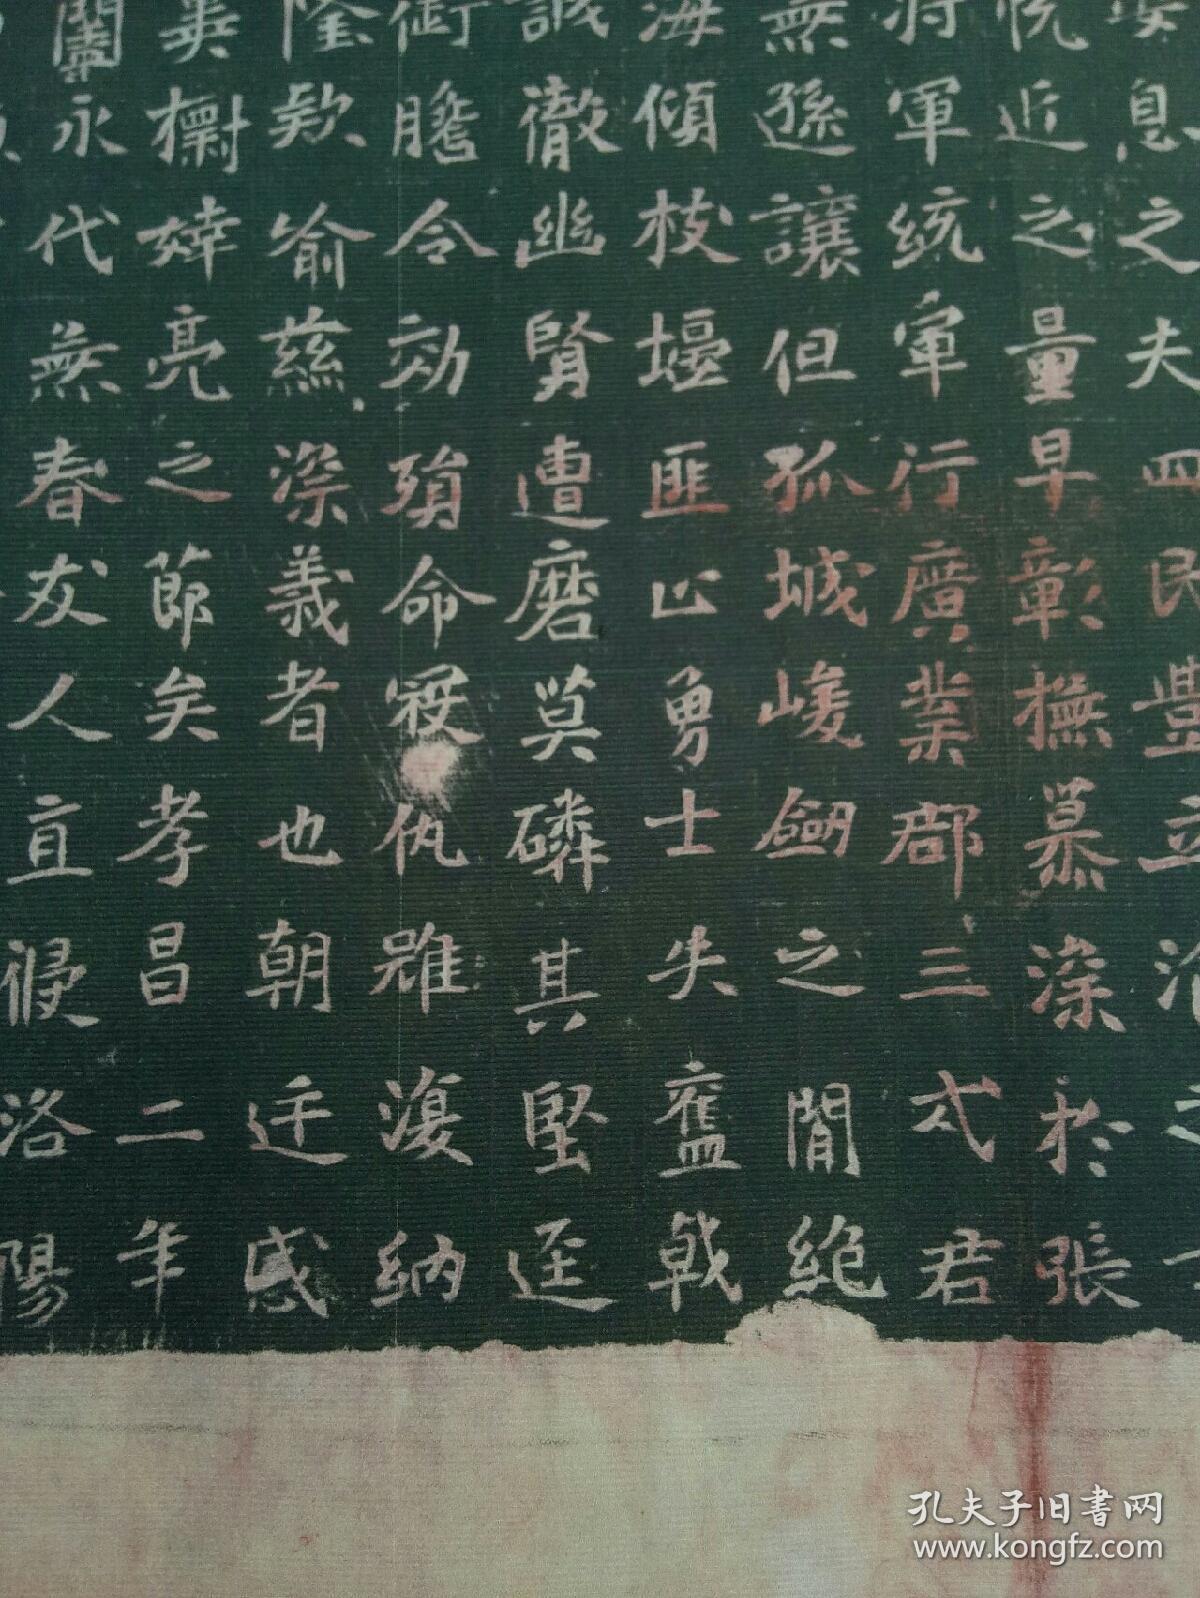 安息之夫四民豊立
悦近之量早彰撫慕深於張
将軍統軍行廣業郡三弍君
無遜讓但孤城峻劒之間絶
海傾枝堰匪山勇士失舊戟
誠徹幽賢遭磨莫磷其堅迳
銜膽令効殞命寇仇雖復納
隆欵喻慈深義者也朝迁感
異檦婞亮之節矣孝昌二年
闔永代無春友人直侵洛陽
孔夫子旧書网
www.kongfz.com